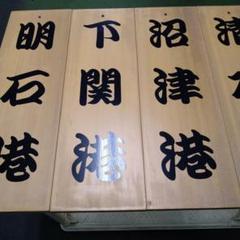 明石港
下関港
沼津港